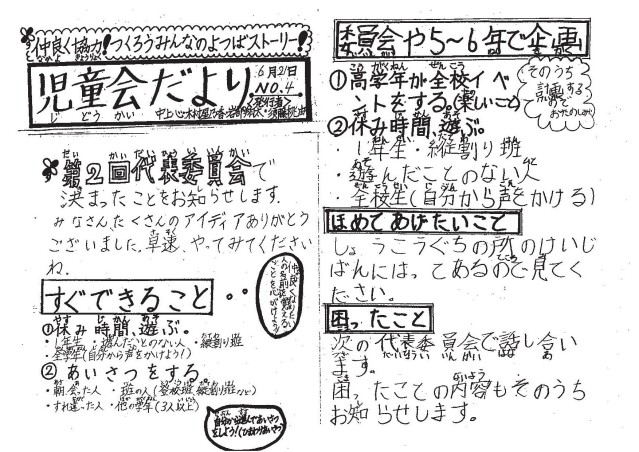 仲良く協力!つくろうみんなのよつばストーリー!
児童会だより
じどうかい
6月21日
NO.4
<発行者>
第2回代表委員会で
決まったことをお知らせします。
みなさん、たくさんのアイディアありがとう
ございました。早速、やってみてください
ね。
すぐできること
①休み時間、遊ぶ。
・1年生・遊んだことのない人・縦割り班
・全学年(自分から声をかけよう!)
②あいさつをする
・朝、会った人・班の人(登校班、縦割り班など)
・すれ違った人・他の学年(3人以上)
委員会や5~6年で企画
①高学年が全校イベ
ントをする。(楽しいこと)
②休み時間、遊ぶ。
・1年生・縦割り班
・遊んだことのない人
・全校生(自分から声をかける)
そのうち
計画する
ので
おたのしみに
ほめてあげたいこと
しょうこうぐちの所のけいじ
ばんにはってあるので見てく
ださい。
困ったこと
次の代表委員会で話し合い
ます。
困ったことの内容もそのうち
お知らせします。